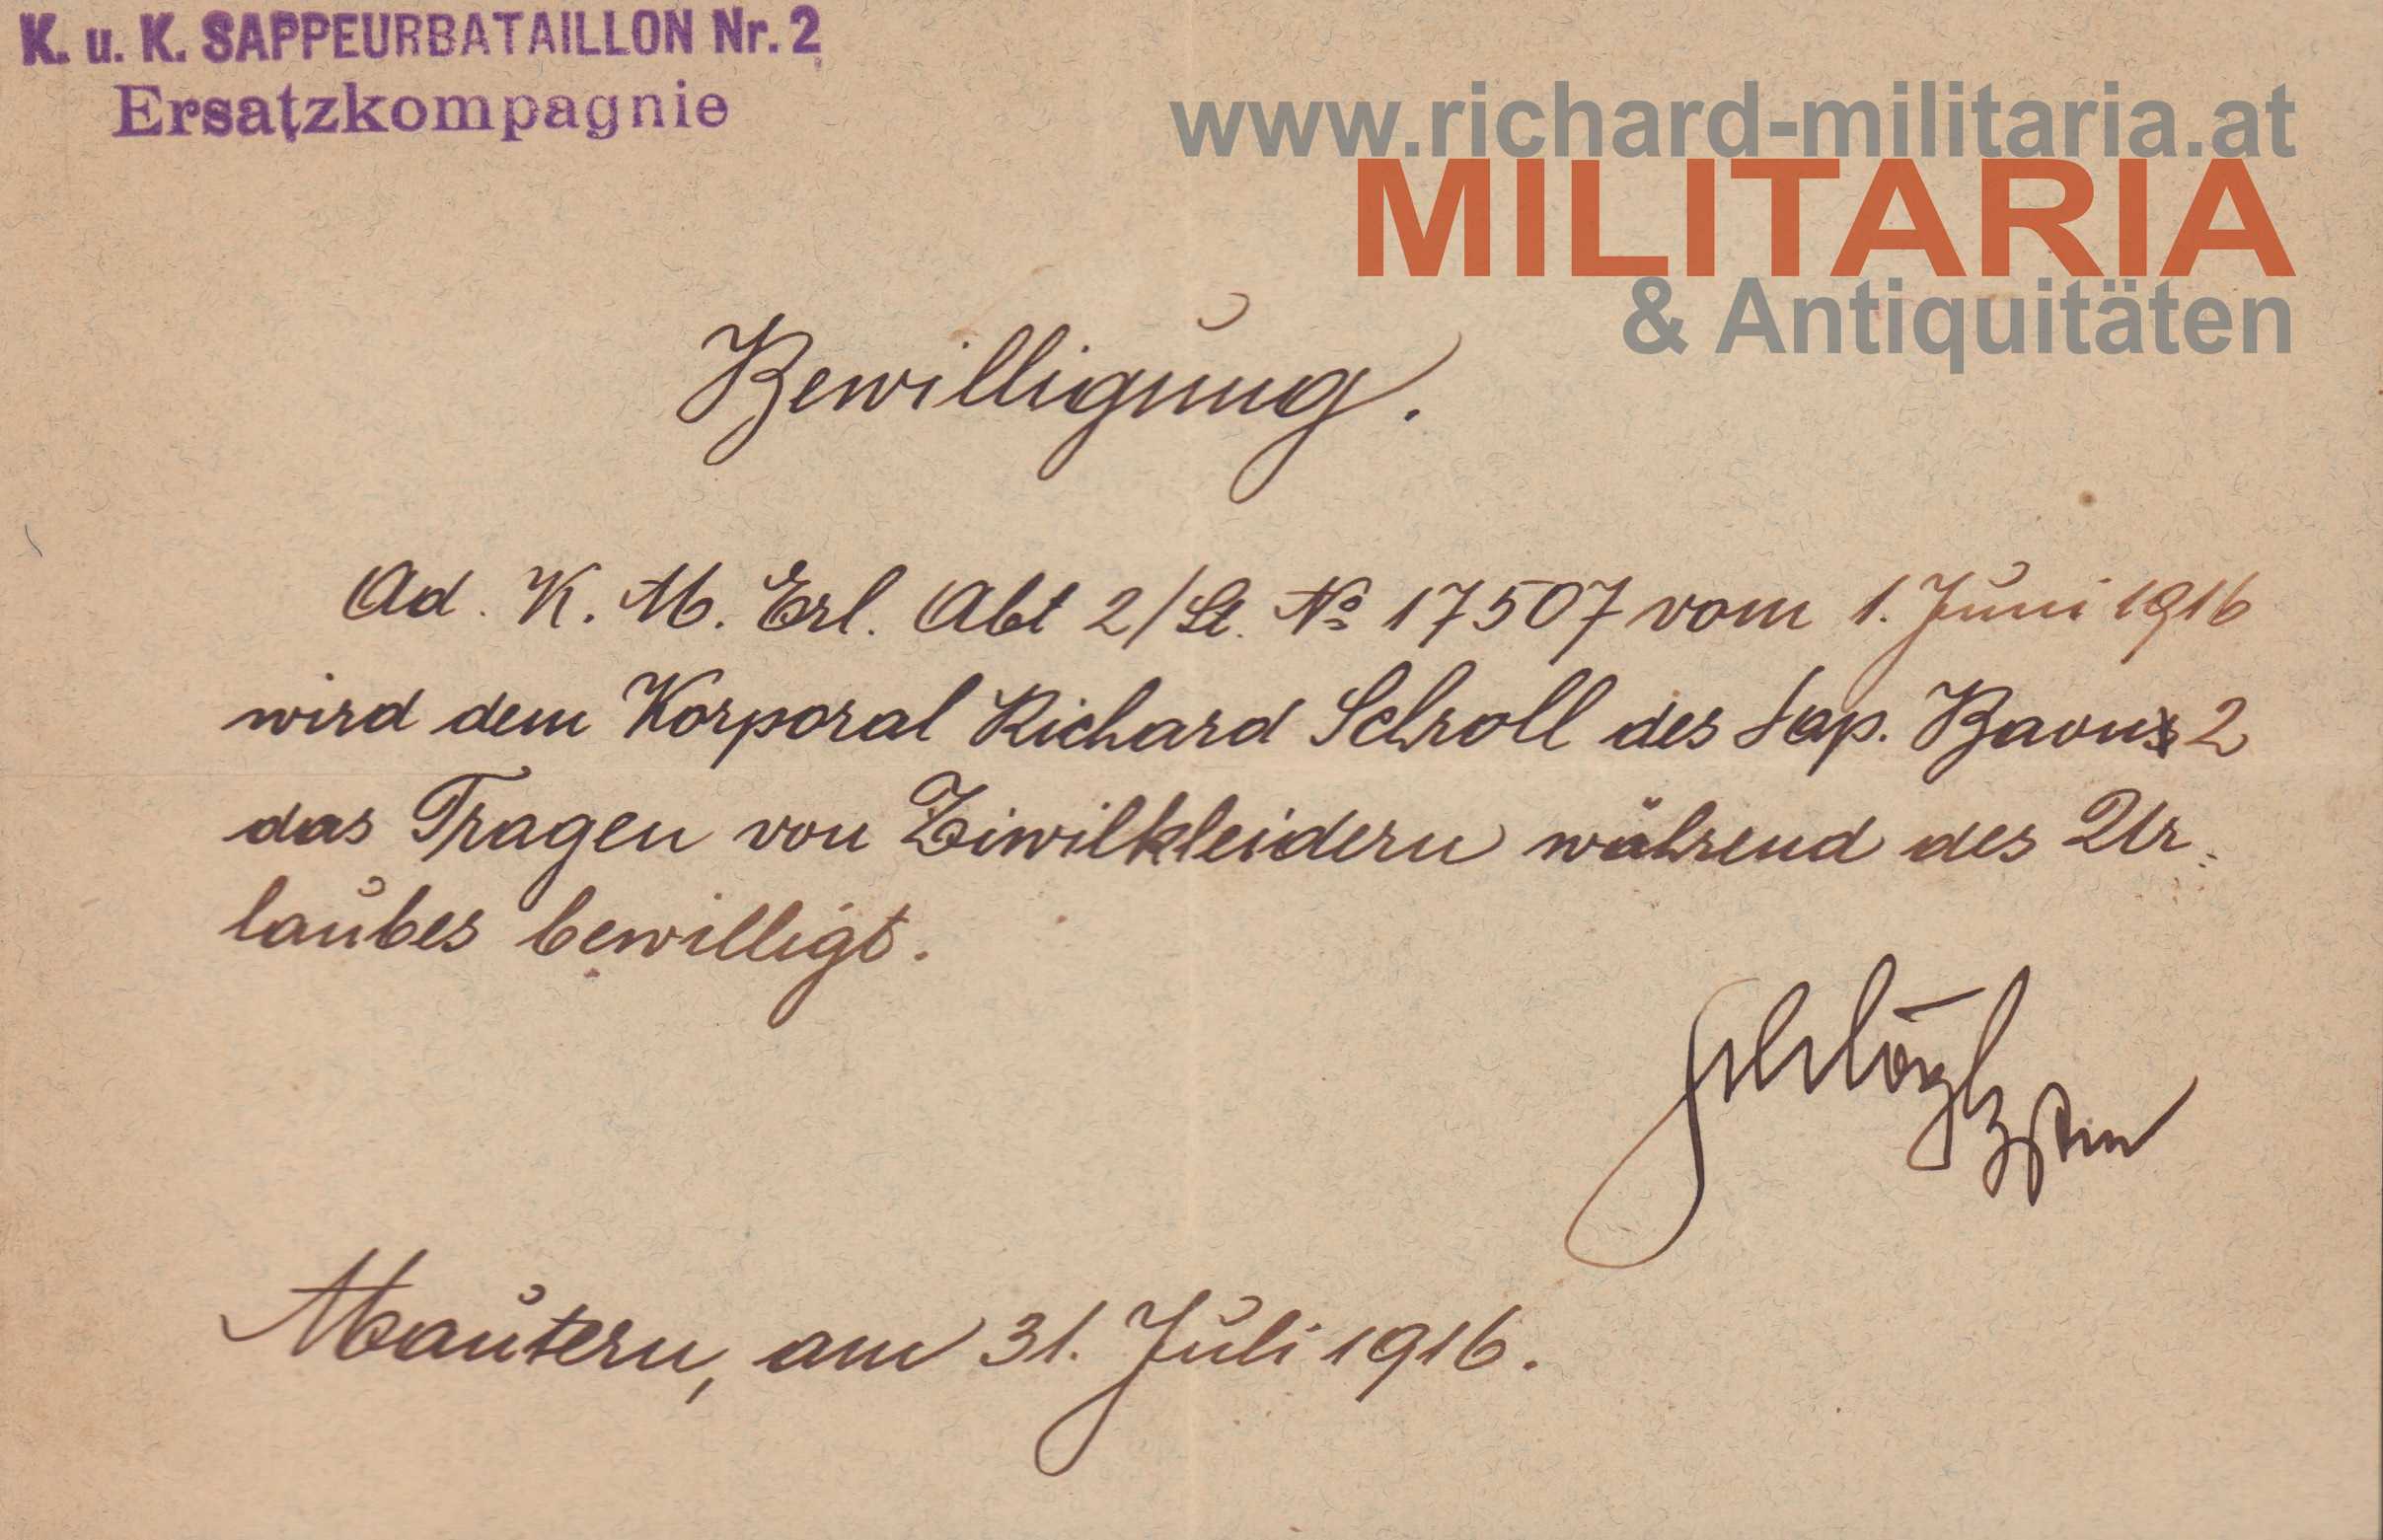 K. u. K. SAPPEURBATAILLON Nr. 2
Ersatzkompagnie
www.richard-militaria.at
MILITARIA
& Antiquitäten
Bewilligung.
Ad. K. M. Erl. Abt 2/St. No 17507 vom 1. Juni 1916
wird dem Korporal Richard Schroll des Sap. Baons 2
das Tragen von Ziwilkleidern während des Ur-
laubes bewilligt.
Mautern, am 31. Juli 1916.